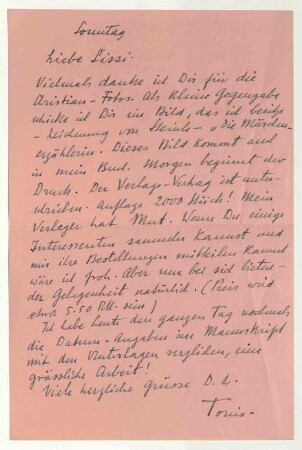 Sonntag
Liebe Lissi.
Vielmals danke ich Dir für die
Christian-Fotos. Als kleine Gegengabe
schicke ich Dir ein Bild, das ich besitze
- Zeichnung von Steinle - "Die Märchen-
erzählerin. Dieses Bild kommt auch
in mein Buch. Morgen beginnt der
Druck. Der Verlags-Vertrag ist unter-
schrieben. Auflage 2000 Stück! Mein
Verleger hat Mut. Wenn Du einige
Interessenten sammeln kannst und
mir ihre Bestellungen mitteilen kannst
wäre ich froh. Aber nur bei sich bieten-
der Gelegenheit natürlich. (Preis wird
etwa 5.50 RM. sein)
Ich habe heute den ganzen Tag nochmals
die Datum-Angaben im Manuskript
mit den Unterlagen verglichen, eine
grässliche Arbeit!
Viele herzliche Grüsse D. L.
Tonis.